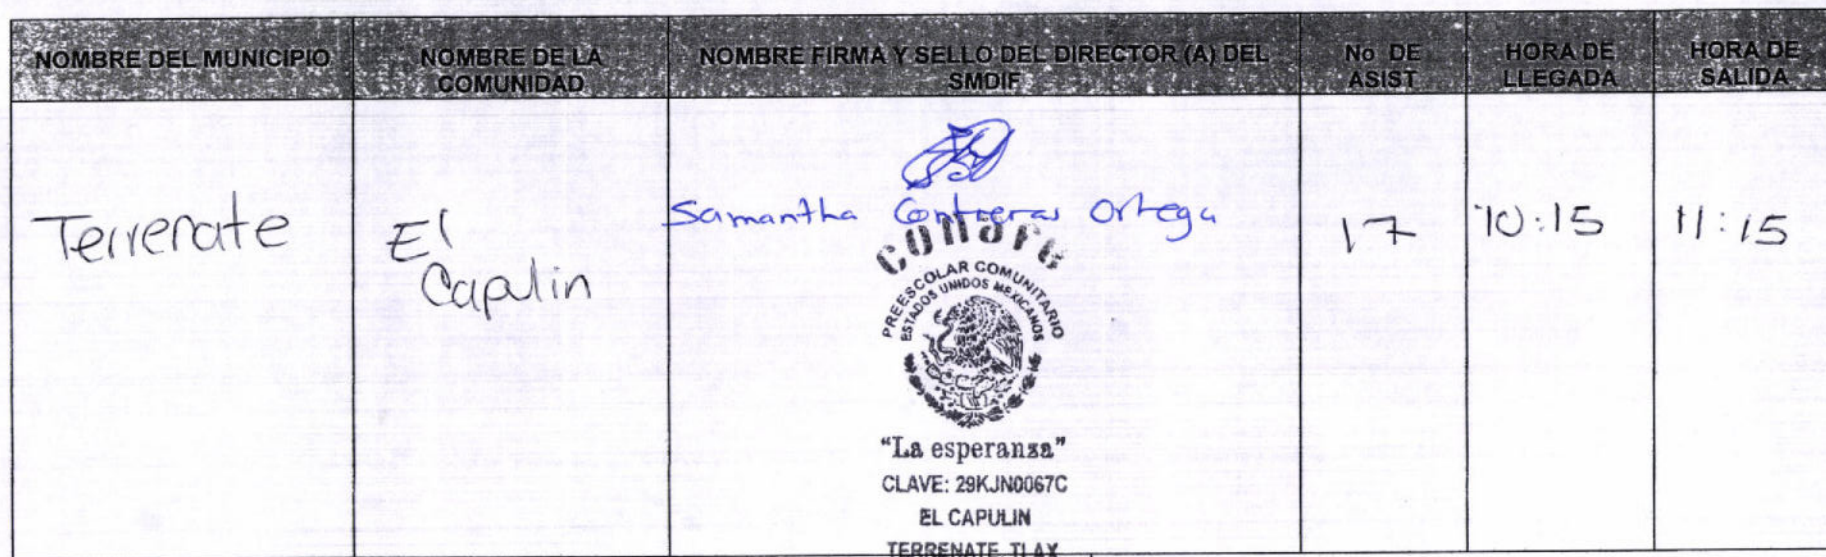 NOMBRE DEL MUNICIPIO
NOMBRE DE LA
COMUNIDAD
NOMBRE FIRMA Y SELLO DEL DIRECTOR (A) DEL
SMDIF
No DE
ASIST
HORA DE
LLEGADA
HORA DE
SALIDA
Terrenate
El
Capulin
Samantha Contreras Ortega
17
10:15
11:15
conafe
PREESCOLAR COMUNITARIO
ESTADOS UNIDOS MEXICANOS
"La esperanza"
CLAVE: 29KJN0067C
EL CAPULIN
TERRENATE TLAX